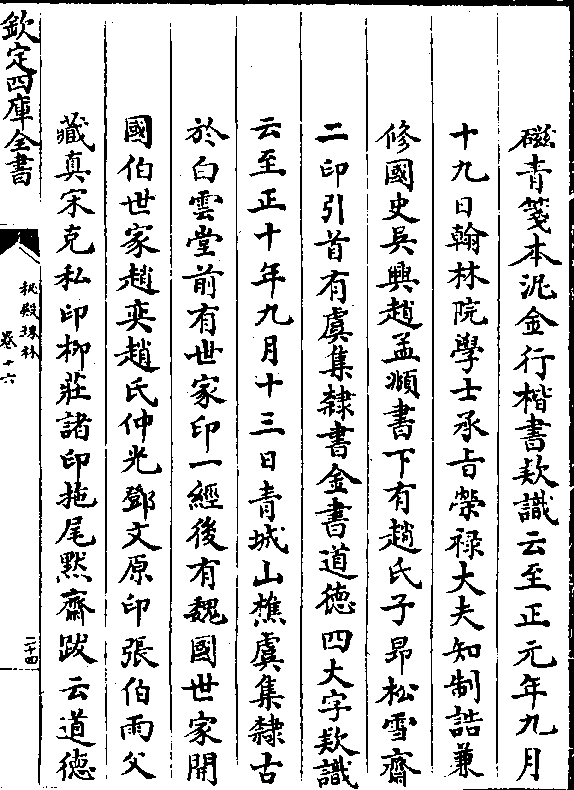 磁青箋本泥金行楷書欵識云至正元年九月
十九日翰林院學士承㫖榮禄大夫知制誥兼
修國史吳興趙孟頫書下有趙氏子昂松雪齋
二印引首有虞集隸書金書道徳四大字欵識
云至正十年九月十三日青城山樵虞集隸古
於白雲堂前有世家印一經後有魏國世家開
國伯世家趙奕趙氏仲光鄧文原印張伯雨父
藏真宋克私印柳莊諸印拖尾默齋跋云道徳
欽定四庫全書
秘殿珠林
卷十六
二十四